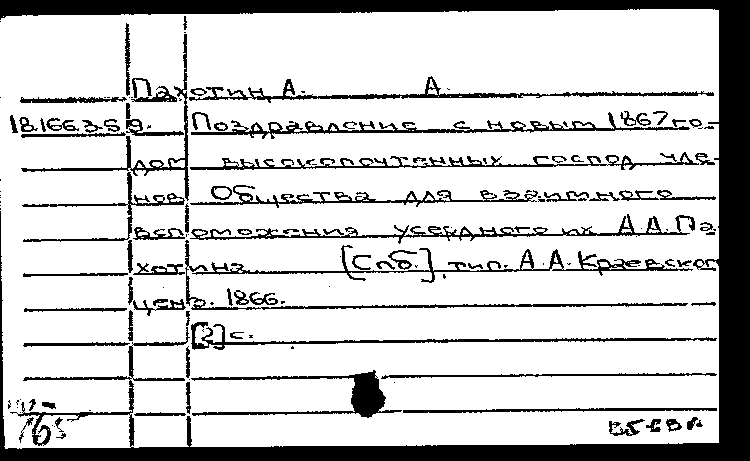 Пахотин, А. А.
18.166.3.59. Поздравление с новым 1867 го-
дом высокопочтенных господ чле-
нов Общества для взаимного
вспоможения усердного их А.А. Па-
хотина. [Спб.], тип. А.А. Краевского,
ценз. 1866.
[2] с.
165